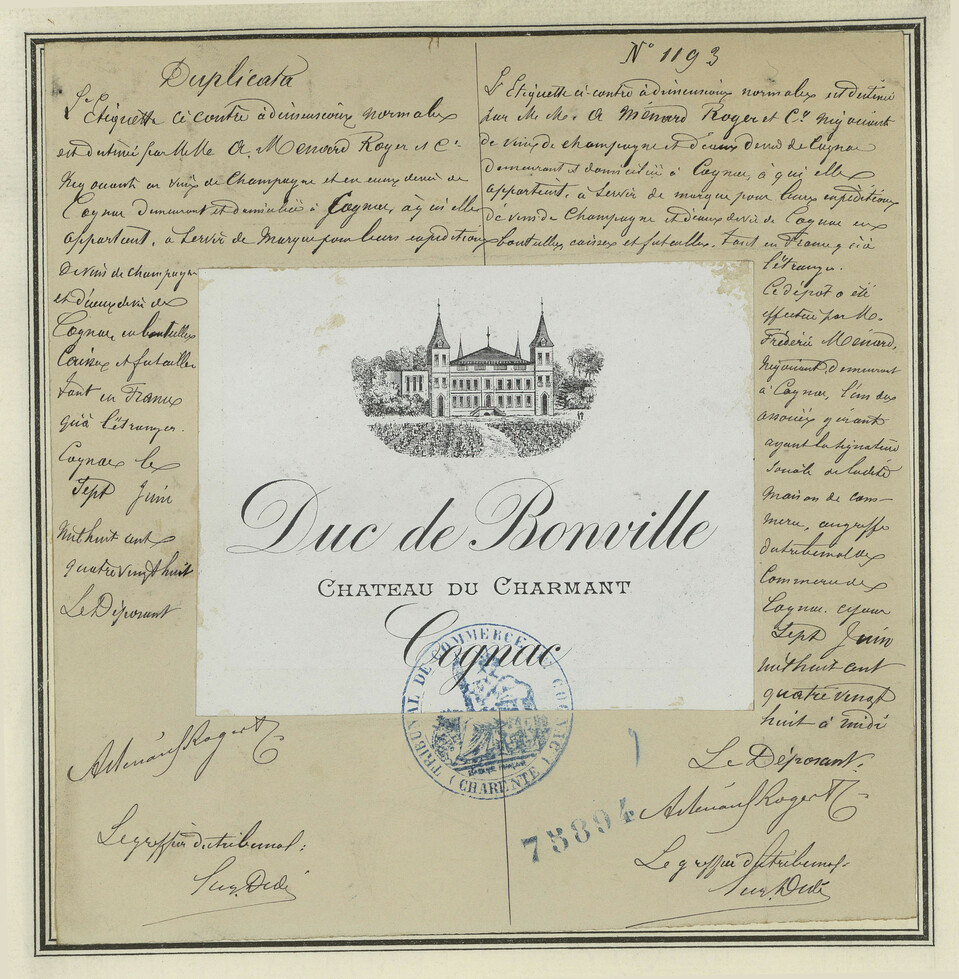 Duplicata
L'Etiquette ci contre à dimensions normales
est destinée par MM A. Menard Roger et Cie
Négociants en vins de Champagne et en eaux de vie de
Cognac demeurant et domiciliés à Cognac, à qui elle
appartient, à servir de marque pour leurs expéditions
De vins de champagne
et d'eaux de vie de
Cognac, en bouteilles
Caisses et futailles
tant en France
qu'à l'étranger.
Cognac le
Sept Juin
Mil huit cent
quatre vingt huit
Le Déposant
A Ménard Roger & C
Le greffier du tribunal:
N° 1193
L'Etiquette ci-contre à dimensions normales est destinée
par MM. A Ménard Roger et Cie négociants
de vins de champagne et d'eaux de vie de Cognac
demeurant et domiciliés à Cognac, à qui elle
appartient, à servir de marque pour leurs expéditions
de vins de Champagne et d'eaux de vie de Cognac en
bouteilles caisses et futailles, tant en France qu'à
l'étranger.
Ce dépôt a été
effectué par M.
Frédéric Ménard,
Négociant, demeurant
à Cognac, l'un des
associés gérants
ayant la signature
sociale de ladite
maison de com-
merce, au greffe
du tribunal de
Commerce de
Cognac, ce jour
Sept Juin
mil huit cent
quatre vingt
huit à midi
Le Déposant:
A Ménard Roger & C
Le greffier du tribunal
Duc de Bonville
CHATEAU DU CHARMANT
Cognac
TRIBUNAL DE COMMERCE DE COGNAC
(CHARENTE)
75894